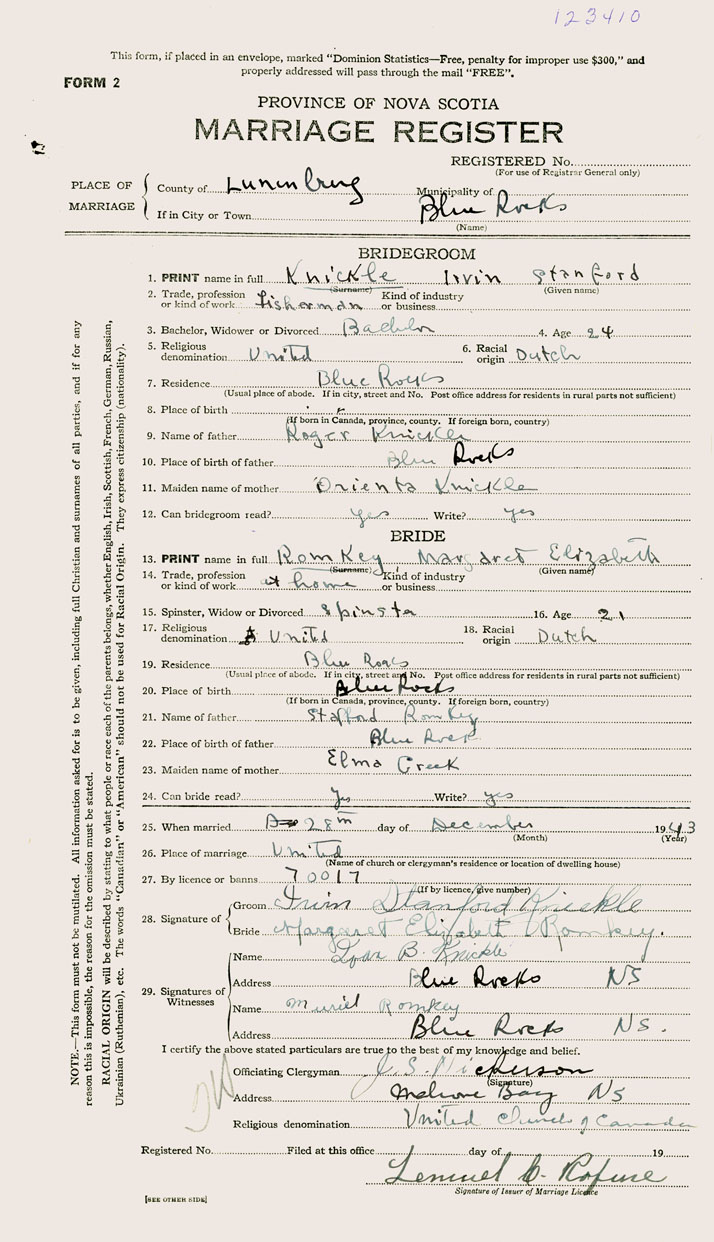 123410
This form, if placed in an envelope, marked “Dominion Statistics—Free, penalty for improper use $300,” and
properly addressed will pass through the mail “FREE”.
FORM 2
PROVINCE OF NOVA SCOTIA
MARRIAGE REGISTER
REGISTERED No.
(For use of Registrar General only)
PLACE OF MARRIAGE
County of Lunenburg Municipality of
If in City or Town Blue Rocks
(Name)
BRIDEGROOM
1. PRINT name in full Knickle Irvin Stanford
(Surname) (Given name)
2. Trade, profession or kind of work Fisherman Kind of industry or business
3. Bachelor, Widower or Divorced Bachelor 4. Age 24
5. Religious denomination United 6. Racial origin Dutch
7. Residence Blue Rocks
(Usual place of abode. If in city, street and No. Post office address for residents in rural parts not sufficient)
8. Place of birth
(If born in Canada, province, county. If foreign born, country)
9. Name of father Roger Knickle
10. Place of birth of father Blue Rocks
11. Maiden name of mother Orienta Knickle
12. Can bridegroom read? yes Write? yes
BRIDE
13. PRINT name in full Romkey Margaret Elizabeth
(Surname) (Given name)
14. Trade, profession or kind of work at home Kind of industry or business
15. Spinster, Widow or Divorced Spinsta 16. Age 21
17. Religious denomination United 18. Racial origin Dutch
19. Residence Blue Rocks
(Usual place of abode. If in city, street and No. Post office address for residents in rural parts not sufficient)
20. Place of birth Blue Rocks
(If born in Canada, province, county. If foreign born, country)
21. Name of father Stafford Romkey
22. Place of birth of father Blue Rocks
23. Maiden name of mother Elma Creek
24. Can bride read? Yes Write? yes
25. When married 28th day of December 1943
(Month) (Year)
26. Place of marriage United
(Name of church or clergyman's residence or location of dwelling house)
27. By licence or banns 70017
(If by licence, give number)
28. Signature of
Groom Irvin Stanford Knickle
Bride Margaret Elizabeth Romkey.
29. Signatures of Witnesses
Name B. Knickle
Address Blue Rocks NS
Name Muriel Romkey
Address Blue Rocks NS.
I certify the above stated particulars are true to the best of my knowledge and belief.
Officiating Clergyman J. S. Nickerson
(Signature)
Address Mahone Bay NS
Religious denomination United Church of Canada
Registered No. Filed at this office day of 19
Lemuel C. Rofuse
Signature of Issuer of Marriage Licence
[SEE OTHER SIDE]
NOTE.—This form must not be mutilated. All information asked for is to be given, including full Christian and surnames of all parties, and if for any
reason this is impossible, the reason for the omission must be stated.
RACIAL ORIGIN will be described by stating to what people or race each of the parents belongs, whether English, Irish, Scottish, French, German, Russian,
Ukrainian (Ruthenian), etc. The words “Canadian” or “American” should not be used for Racial Origin. They express citizenship (nationality).